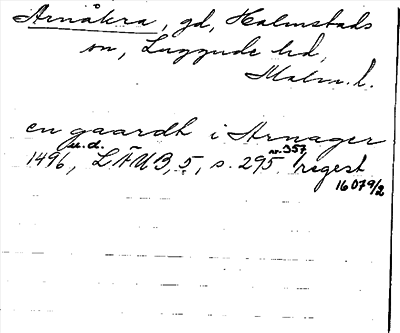 Arnåkra, gd, Halmstads
sn, Luggude hd,
Malm. l.
en gaardh i Arnager
u.d. nr. 357
1496, LÄUB, 5, s. 295 regest
16079/2